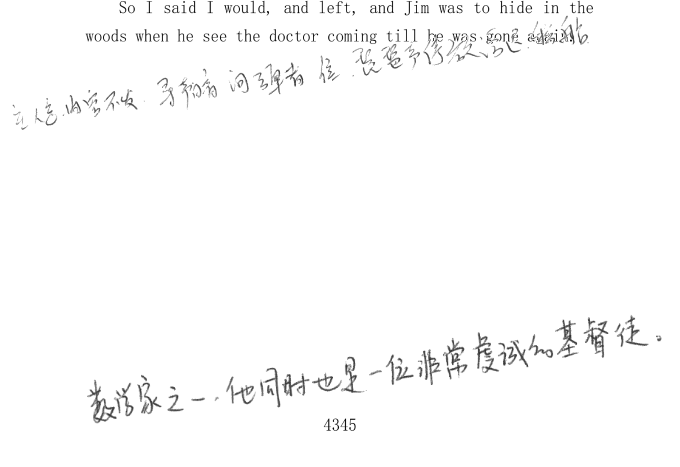 So I said I would, and left, and Jim was to hide in the
woods when he see the doctor coming till he was gone again.
主人忘归客不发.寻声暗问弹者谁.琵琶声停欲语迟.移船
数学家之一.他同时也是一位非常虔诚的基督徒。
4345